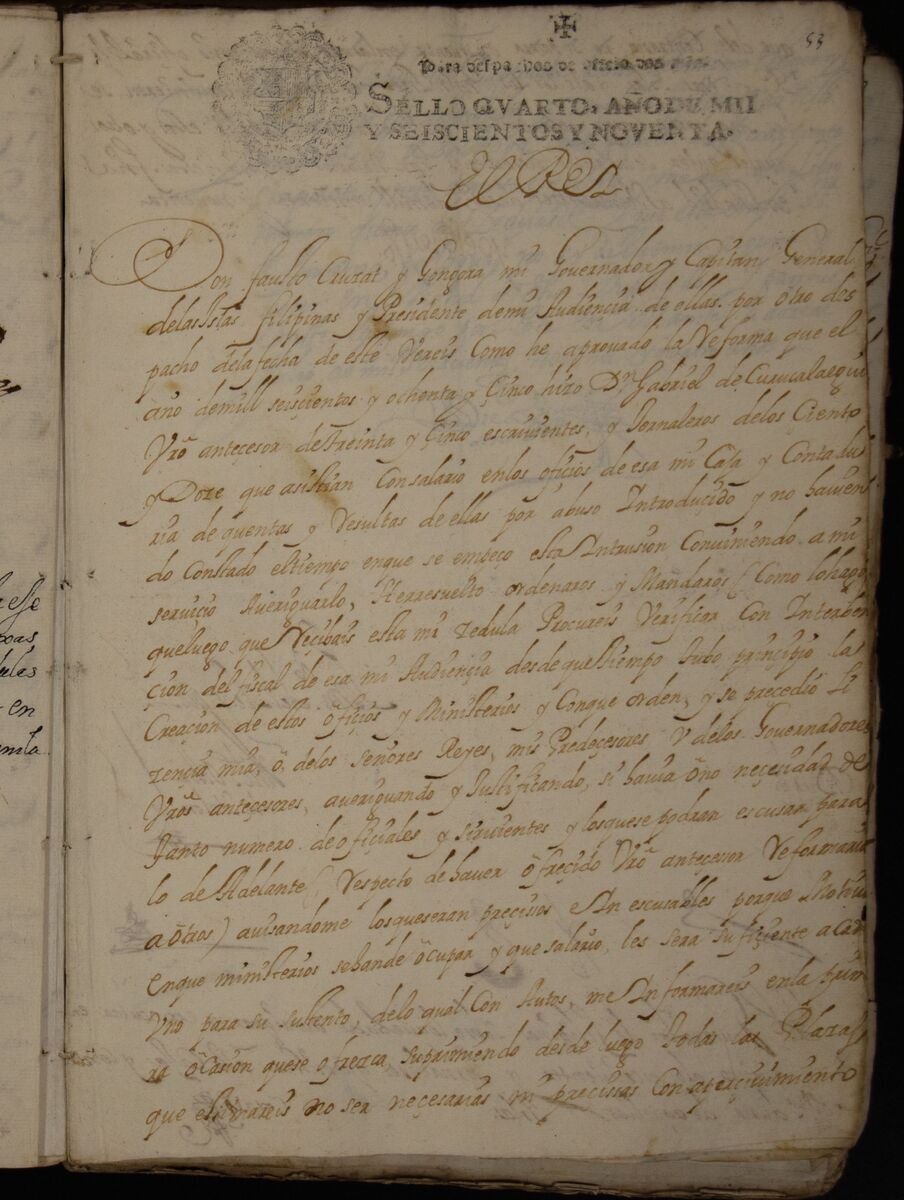 53
Para despachos de oficio dos mrs.
SELLO QVARTO, AÑO DE MIL
Y SEISCIENTOS Y NOVENTA.
El Rey
Don fausto Cruzat y Gongora mi Governador y Capitan General
delas Islas filipinas y Presidente demi Audiencia de ellas por otro des
pacho dela fecha de este vereis Como he aprovado la Reforma que el
año demill seiscientos y ochenta y Çinco hizo Dn Gabriel de Curucalaegui
Vrõ antecesor detreinta y Çinco escrivientes, y Jornaleros delos Ciento
y Doze que asistian Consalario enlos ofiçios de esa mi Caja y Contadu
ria de quentas y Resultas de ellas por abuso Introducido y no havien
do Constado eltiempo enque se empeço esta Intrusion Conviniendo a mi
serviçio Averiguarlo, Herresuelto ordenaros y Mandaros (Como lohago)
queluego que Reçibais esta mi zedula Procureis Verificar Con Interben
çion del fiscal de esa mi Audiençia desde que tiempo tubo prinçipio la
Creaçion de estos ofiçios y Ministerios y Conque orden, y se preçedio li
zençia mia, õ, delos señores Reyes, mis Predeçesores v delos Governadores
Vrõs anteçesores, averiguando y Justificando, si havia õ no neçesidad de
tanto numero de ofiçiales y sirvientes y losquese podran escusar para
lo de Adelante (Respecto de haver ofreçido Vrõ anteçesor Reformaria
a õtros) avisandome losqueseran preçisos e Inescusables porque Motivo
enque ministerios sehande õcupar y que salario, les sera sufiçiente a Cada
Vno para su sustento, delo qual Con Autos, me Informareis enla prime
ra õcasion quese ofrezca, suprimiendo desde luego todas las Plazas
que estimareis no ser neçesarias ni preçissas Con aperçivimiento